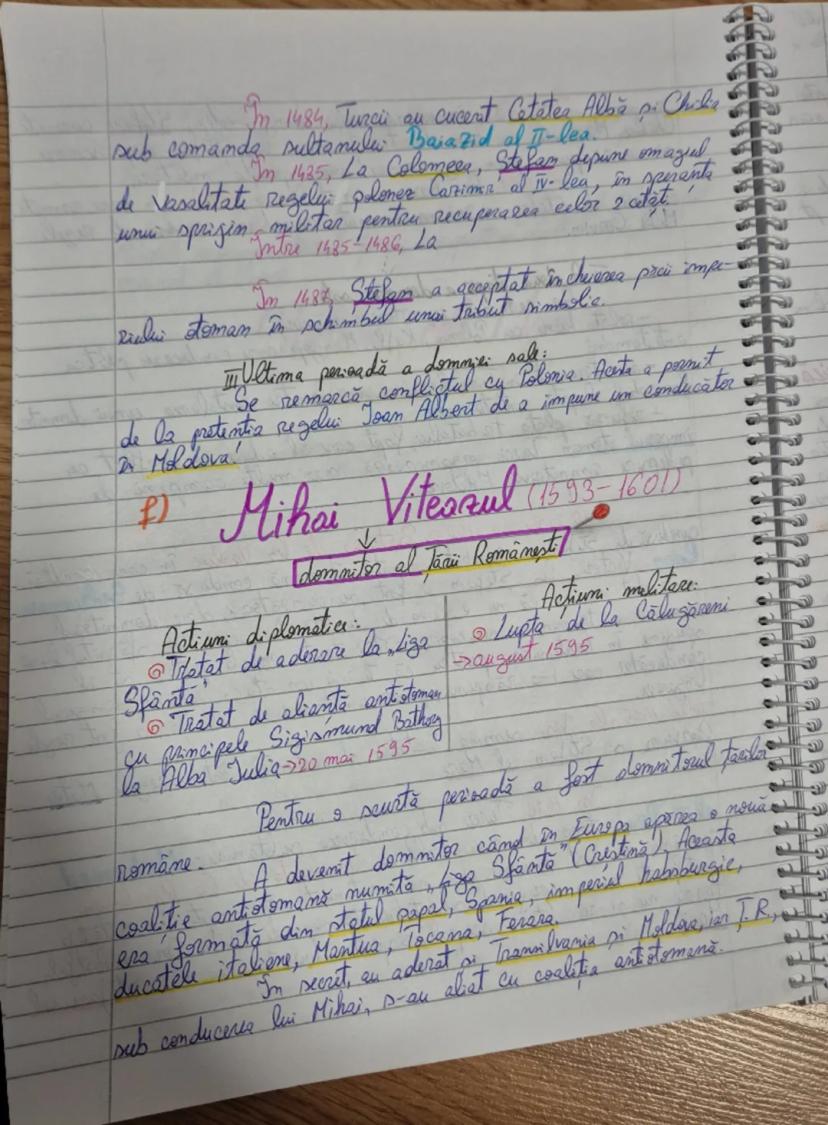 În 1484, Turcii au cucerit Cetatea Albă și Chilia
sub comanda sultanului Baiazid al II-lea.
În 1485, La Colomeea, Ștefan depune omagiul
de vasalitate regelui polonez Cazimir al IV-lea, în speranța
unui sprijin militar pentru recuperarea celor 2 cetăți.
Între 1485-1486, La
În 1487, Ștefan a acceptat încheierea păcii impe-
riului otoman în schimbul unui tribut simbolic.
III Ultima perioadă a domniei sale:
Se remarcă conflictul cu Polonia. Acesta a pornit
de la pretenția regelui Ioan Albert de a impune un conducător
în Moldova!
f) Mihai Viteazul (1593-1601)
↓
domnitor al Țării Românești
Acțiuni diplomatice:
Tratat de aderare la „Liga
Sfântă"
Tratat de alianță antiotoman
cu principele Sigismund Bathory
la Alba Iulia → 20 mai 1595
Acțiuni militare:
Lupta de la Călugăreni
→ august 1595
Pentru o scurtă perioadă a fost domnitorul țărilor
române.
A devenit domnitor când în Europa apărea o nouă
coaliție antiotomană numită „Liga Sfântă" (Creștină). Aceasta
era formată din statul papal, Spania, imperiul habsburgic,
ducatele italiene, Mantua, Tocana, Ferara.
În secret, au aderat și Transilvania și Moldova, iar Ț.R.,
sub conducerea lui Mihai, s-au aliat cu coaliția antiotomană.